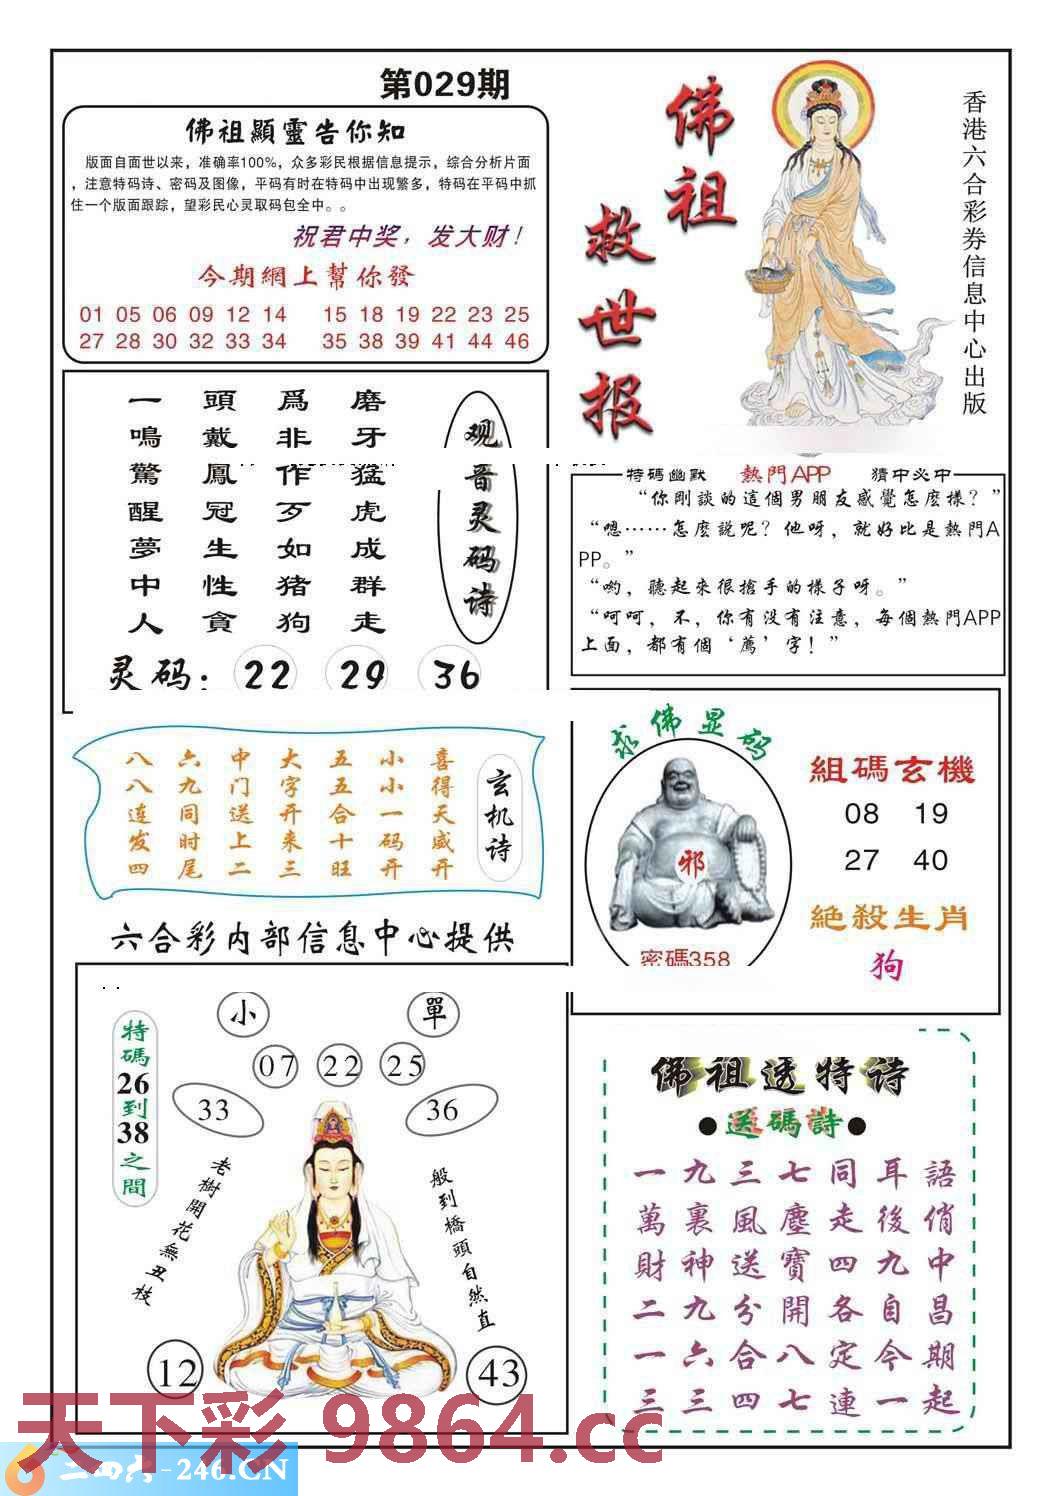 第029期
佛祖顯靈告你知
版面自面世以来，准确率100%，众多彩民根据信息提示，综合分析片面
，注意特码诗、密码及图像，平码有时在特码中出现繁多，特码在平码中抓
住一个版面跟踪，望彩民心灵取码包全中。。
祝君中奖，发大财！
今期網上幫你發
01 05 06 09 12 14 15 18 19 22 23 25
27 28 30 32 33 34 35 38 39 41 44 46
佛祖
救世报
香港六合彩券信息中心出版
观音灵码诗
磨牙猛虎成群走
爲非作歹如猪狗
頭戴鳳冠生性貪
一鳴驚醒夢中人
灵码：22 29 36
特碼幽默 熱門APP 猜中必中
“你剛談的這個男朋友感覺怎麽樣？”
“嗯……怎麽說呢？他呀，就好比是熱門A
PP。”
“喲，聽起來很搶手的樣子呀。”
“呵呵，不，你有没有注意，每個熱門APP
上面，都有個‘薦’字！”
玄机诗
喜得天威开
小小一码开
五五合十旺
大字开来三
中门送上二
六九同时尾
八八连发四
求佛显码
邪
密碼358
組碼玄機
08 19
27 40
絶殺生肖
狗
六合彩内部信息中心提供
特碼26到38之間
小 單
07 22 25
33 36
老樹開花無丑枝
般到橋頭自然直
12 43
佛祖透特诗
●送碼詩●
一九三七同耳語
萬裏風塵走後俏
財神送寶四九中
二九分開各自昌
一六合八定今期
三三四七連一起
天下彩 9864.cc
二四六-246.CN